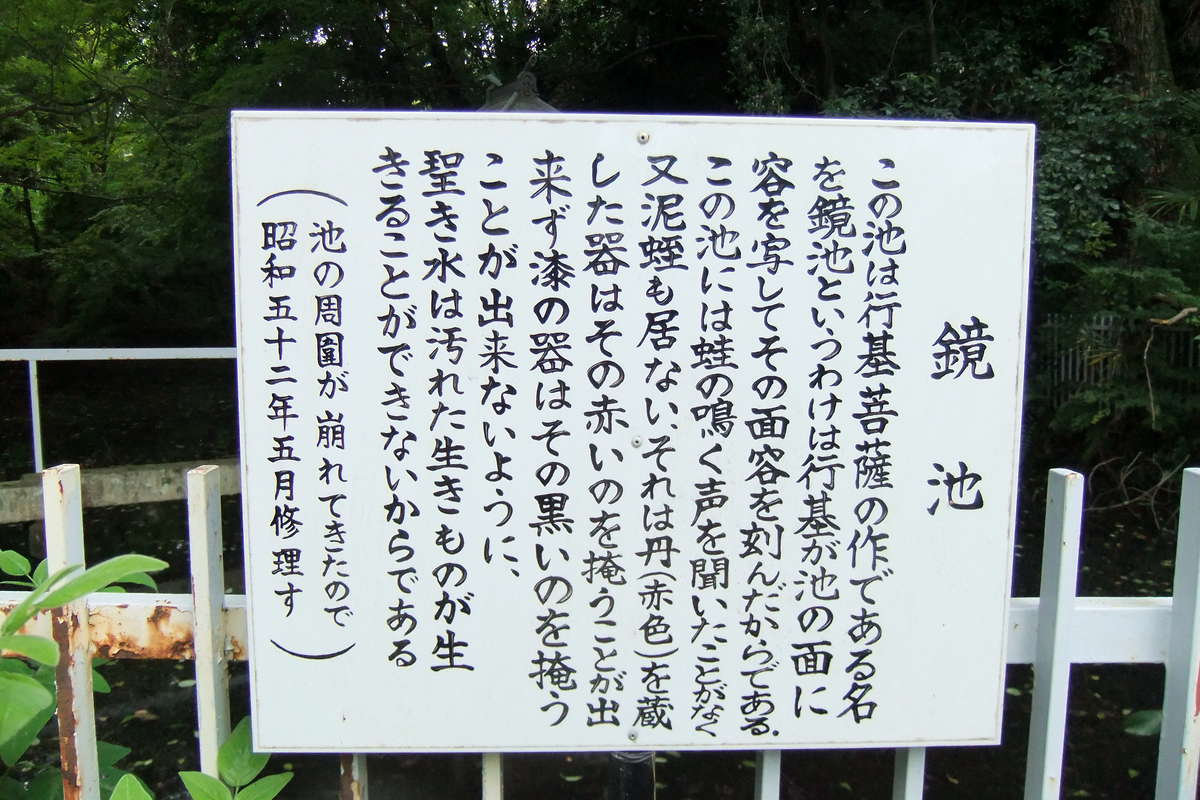 鏡池
この池は行基菩薩の作である名
を鏡池というわけは行基が池の面に
容を写してその面容を刻んだからである.
この池には蛙の鳴く声を聞いたことがなく
又泥蛭も居ない、それは丹(赤色)を蔵
した器はその赤いのを掩うことが出
来ず漆の器はその黒いのを掩う
ことが出来ないように、
聖き水は汚れた生きものが生
きることができないからである
(池の周囲が崩れてきたので
昭和五十二年五月修理す)